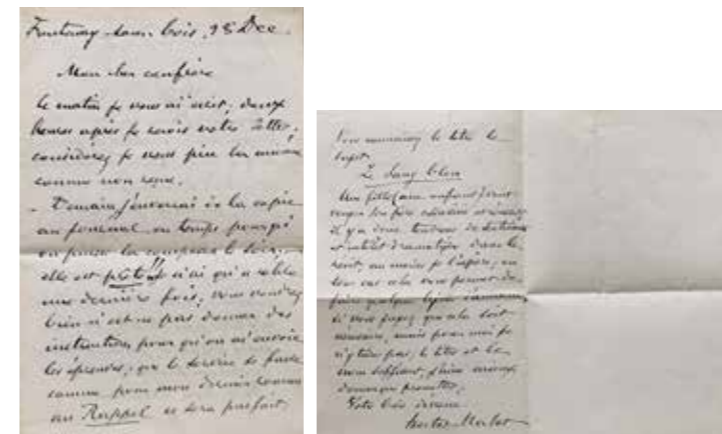 Fontenay sous bois, 18 Dec.
Mon bon confrère
Ce matin je vous ai écrit, deux
heures après je reçois votre lettre,
considérez je vous prie la mienne
comme non reçue.
- Demain j'enverrai de la copie
au journal, au temps pour qu'
on puisse la composer le soir,
elle est prête et n'ai qu'à relire
une dernière fois, vous voudrez
bien n'est ce pas donner des
instructions pour qu'on m'envoie
les épreuves, que le service se fasse
comme pour mon dernier roman
au Rappel ce sera parfait.
Vous le titre le
sujet
Le Sang bleu
Une fille
son père
il y a donc
et intérêt dramatique dans le
récit, au moins je l'espère, en
tous cas cela vous permet de
faire quelques lignes
si vous jugez que cela soit
nécessaire, mais pour moi je
n'y tiens pas, le titre et le
nom suffisent, j'aime mieux
donner que promettre,
Votre bien dévoué
Hector Malot